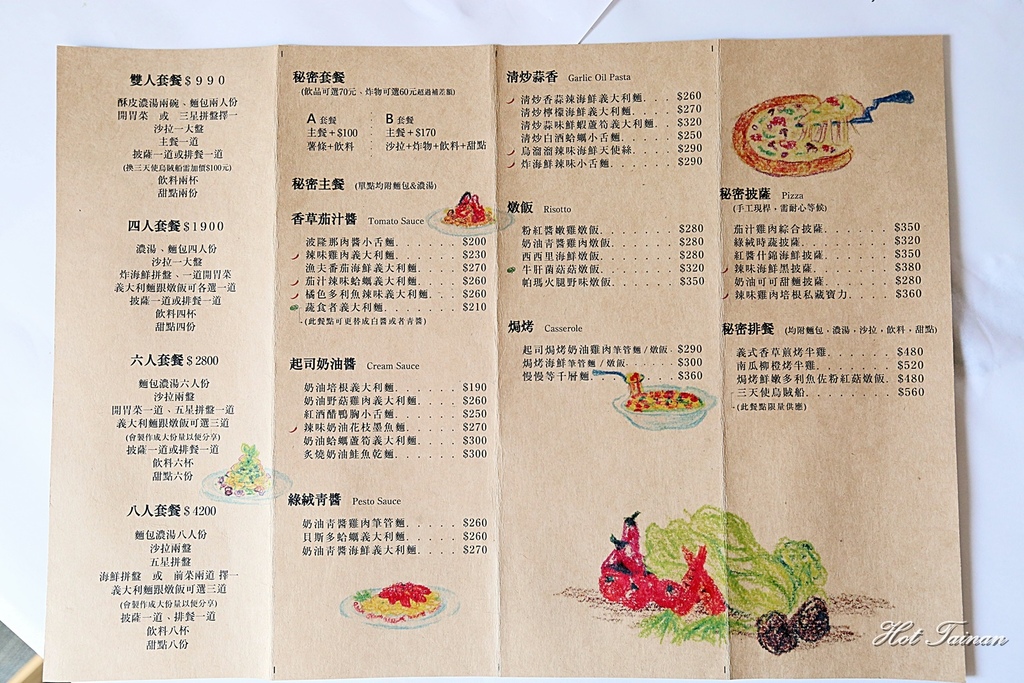 雙人套餐$990
酥皮濃湯兩碗、麵包兩人份
開胃菜 或 三星拼盤擇一
沙拉一大盤
主餐一道
披薩一道或排餐一道
(換三天使烏賊船需加價$100元)
飲料兩杯
甜點兩份
四人套餐$1900
濃湯、麵包四人份
沙拉一大盤
炸海鮮拼盤、一道開胃菜
義大利麵跟燉飯可各選一道
披薩一道或排餐一道
飲料四杯
甜點四份
六人套餐$2800
麵包濃湯六人份
沙拉兩盤
開胃菜一道、五星拼盤一道
義大利麵跟燉飯可選三道
(會製作成大份量以便分享)
披薩一道或排餐一道
飲料六杯
甜點六份
八人套餐$4200
麵包濃湯八人份
沙拉兩盤
五星拼盤
海鮮拼盤 或 前菜兩道 擇一
義大利麵跟燉飯可選三道
(會製作成大份量以便分享)
披薩一道、排餐一道
飲料八杯
甜點八份
秘密套餐
(飲品可選70元、炸物可選60元超過補差額)
A 套餐 : B 套餐
主餐+$100 : 主餐+$170
薯條+飲料 : 沙拉+炸物+飲料+甜點
秘密主餐 (單點均附麵包&濃湯)
香草茄汁醬 Tomato Sauce
波隆那肉醬小舌麵. . . . . . $200
辣味雞肉義大利麵. . . . . . $230
漁夫番茄海鮮義大利麵. . . . $270
茄汁辣味蛤蠣義大利麵. . . . $260
橘色多利魚辣味義大利麵. . . $260
蔬食者義大利麵. . . . . . . $210
-(此餐點可更替成白醬或者青醬)
起司奶油醬 Cream Sauce
奶油培根義大利麵. . . . . . $190
奶油野菇雞肉義大利麵. . . . $260
紅酒醋鴨胸小舌麵. . . . . . $250
辣味奶油花枝墨魚麵. . . . . $270
奶油蛤蠣蘆筍義大利麵. . . . $300
炙燒奶油鮭魚乾麵. . . . . . $300
綠絨青醬 Pesto Sauce
奶油青醬雞肉筆管麵. . . . . $260
貝斯多蛤蠣義大利麵. . . . . $260
奶油青醬海鮮義大利麵. . . . $270
清炒蒜香 Garlic Oil Pasta
清炒香蒜辣海鮮義大利麵. . . $260
清炒檸檬海鮮義大利麵. . . . $270
清炒蒜味鮮蝦蘆筍義大利麵. . $320
清炒白酒蛤蠣小舌麵. . . . . $250
烏溜溜辣味海鮮天使絲. . . . $290
炸海鮮辣味小舌麵. . . . . . $290
燉飯 Risotto
粉紅醬嫩雞燉飯. . . . . . . $280
奶油青醬雞肉燉飯. . . . . . $280
西西里海鮮燉飯. . . . . . . $280
牛肝菌菇菇燉飯. . . . . . . $320
帕瑪火腿野味燉飯. . . . . . $350
焗烤 Casserole
起司焗烤奶油雞肉筆管麵/燉飯. $290
焗烤海鮮筆管麵/燉飯. . . . . $300
慢慢等千層麵. . . . . . . . $360
秘密披薩 Pizza
(手工現桿，需耐心等候)
茄汁雞肉綜合披薩. . . . . . $350
綠絨時蔬披薩. . . . . . . . $320
紅醬什錦海鮮披薩. . . . . . $350
辣味海鮮黑披薩. . . . . . . $380
奶油可可甜麵披薩. . . . . . $280
辣味雞肉培根私藏寶力. . . . $360
秘密排餐 (均附麵包，濃湯，沙拉，飲料，甜點)
義式香草煎烤半雞. . . . . . $480
南瓜柳橙烤半雞. . . . . . . $520
焗烤鮮嫩多利魚佐粉紅菇燉飯. $480
三天使烏賊船. . . . . . . . $560
-(此餐點限量供應)
Hot Tainan